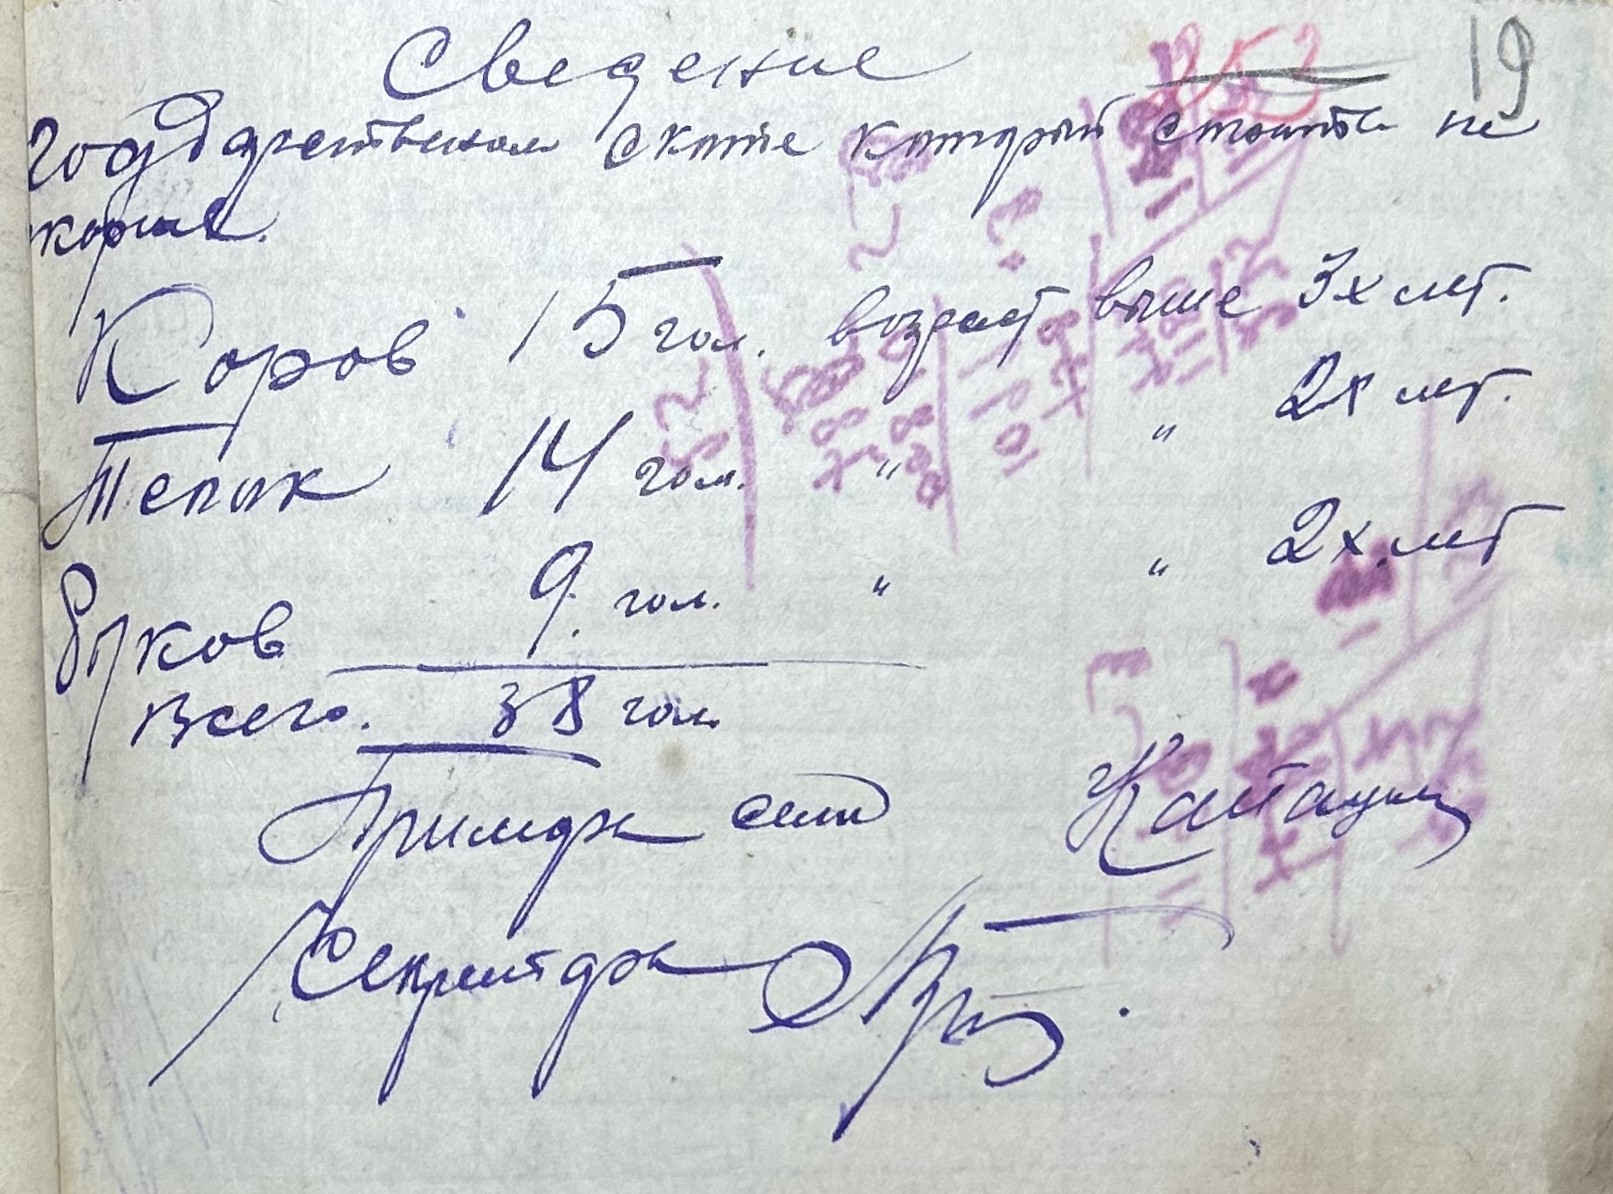 19
Сведение
государственом скоте который стоить на
корме.
Коров 15 гол. возраст выше 3х лет.
Телык 14 гол. " " 2х лет.
Быков 9. гол. " " 2х лет
Всего. 38 гол.
Примарь села
Секретарь